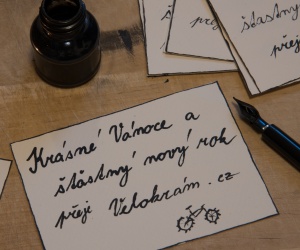 Krásné Vánoce a
šťastný nový rok
přeji Velokrám.cz
přej
šťastný
přej